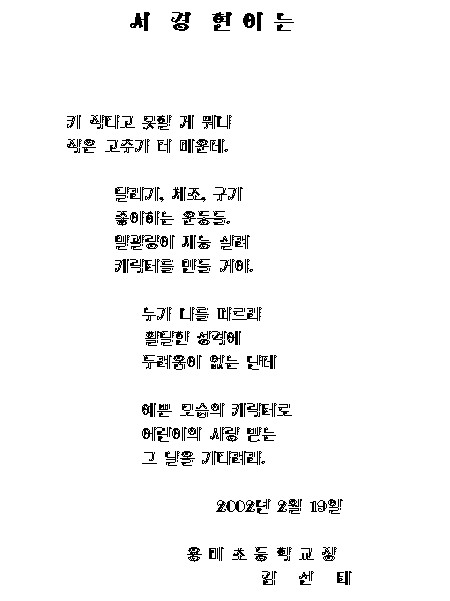 서 경 현 이 는
키 작다고 못할 게 뭐냐
작은 고추가 더 매운데.
달리기, 체조, 구기
좋아하는 운동들.
말괄량이 재능 살려
캐릭터를 만들 거야.
누가 나를 따르랴
활달한 성격에
두려움이 없는 난데
예쁜 모습의 캐릭터로
어린이의 사랑 받는
그 날을 기다려라.
2002년 2월 19일
용 마 초 등 학 교 장
김 선 태